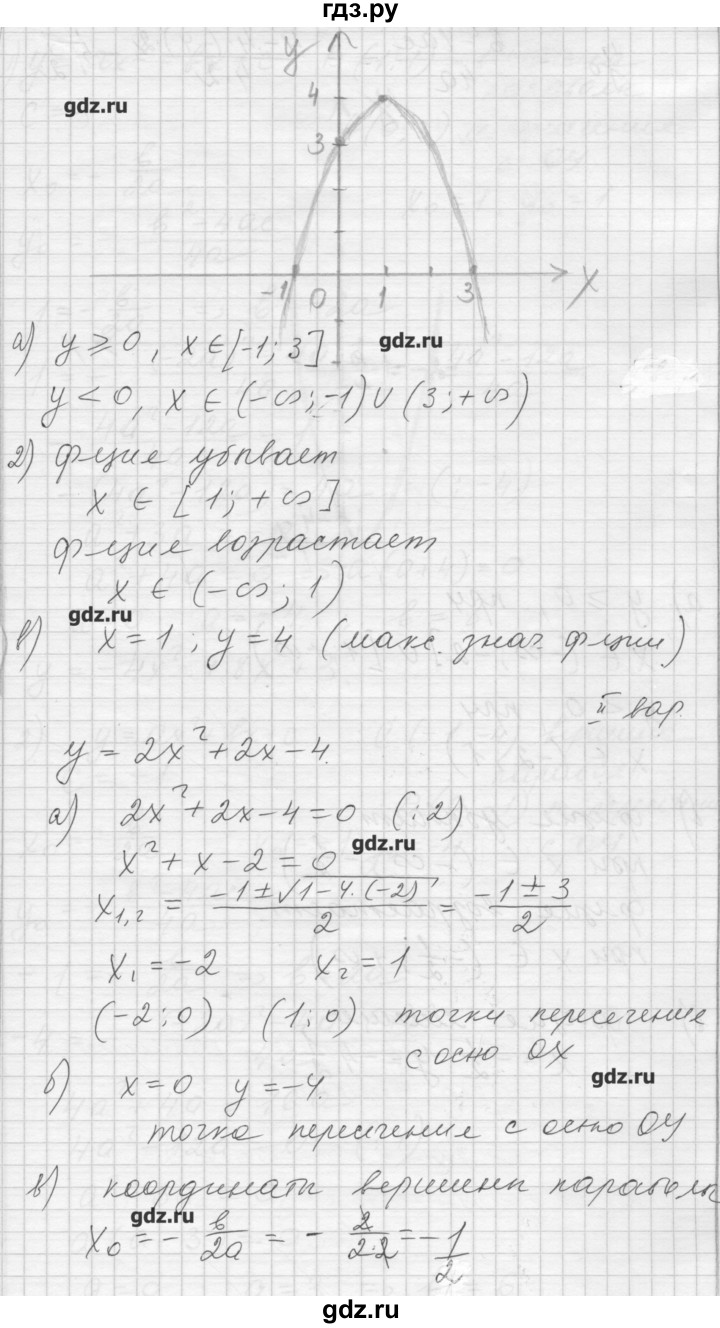 гдз.ру
y
gdz.ru
4
3
-1 0 1 3 x
gdz.ru
а) y ⩾ 0, x ∈ [-1; 3]
y < 0, x ∈ (-∞; -1) ∪ (3; +∞)
2) фция убывает
x ∈ [1; +∞]
фция возрастает
x ∈ (-∞; 1)
gdz.ru
в) x = 1; y = 4 (макс. знач. фции)
II вар.
y = 2x² + 2x - 4.
а) 2x² + 2x - 4 = 0 (:2)
gdz.ru
x² + x - 2 = 0
x₁,₂ = (-1 ± √(1 - 4·(-2)))/2 = (-1 ± 3)/2
x₁ = -2 x₂ = 1
(-2; 0) (1; 0) точки пересечение
с осью OX
gdz.ru
б) x = 0 y = -4.
точка пересечения с осью OY
в) координаты вершины параболы
gdz.ru
x₀ = -b/2a = -2/2·2 = -1/2
gdz.ru